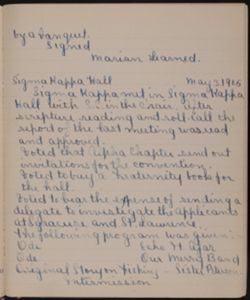 by a banquet.
Signed
Marian Learned.
Sigma Kappa Hall May 3, 1905
Sigma Kappa met in Sigma Kappa
Hall with S. in the chair. After
scripture reading and roll-call the
report of the last meeting was read
and approved.
Voted that Alpha Chapter send out
invitations for the convention.
Voted to buy a fraternity book for
the hall.
Voted to bear the expense of sending a
delegate to investigate the applicants
at Syracuse and St. Lawrence.
The following program was given:-
Ode Echo It Afar
Ode Our Merry Band
Original Story on Fishing - Sister
Intermission